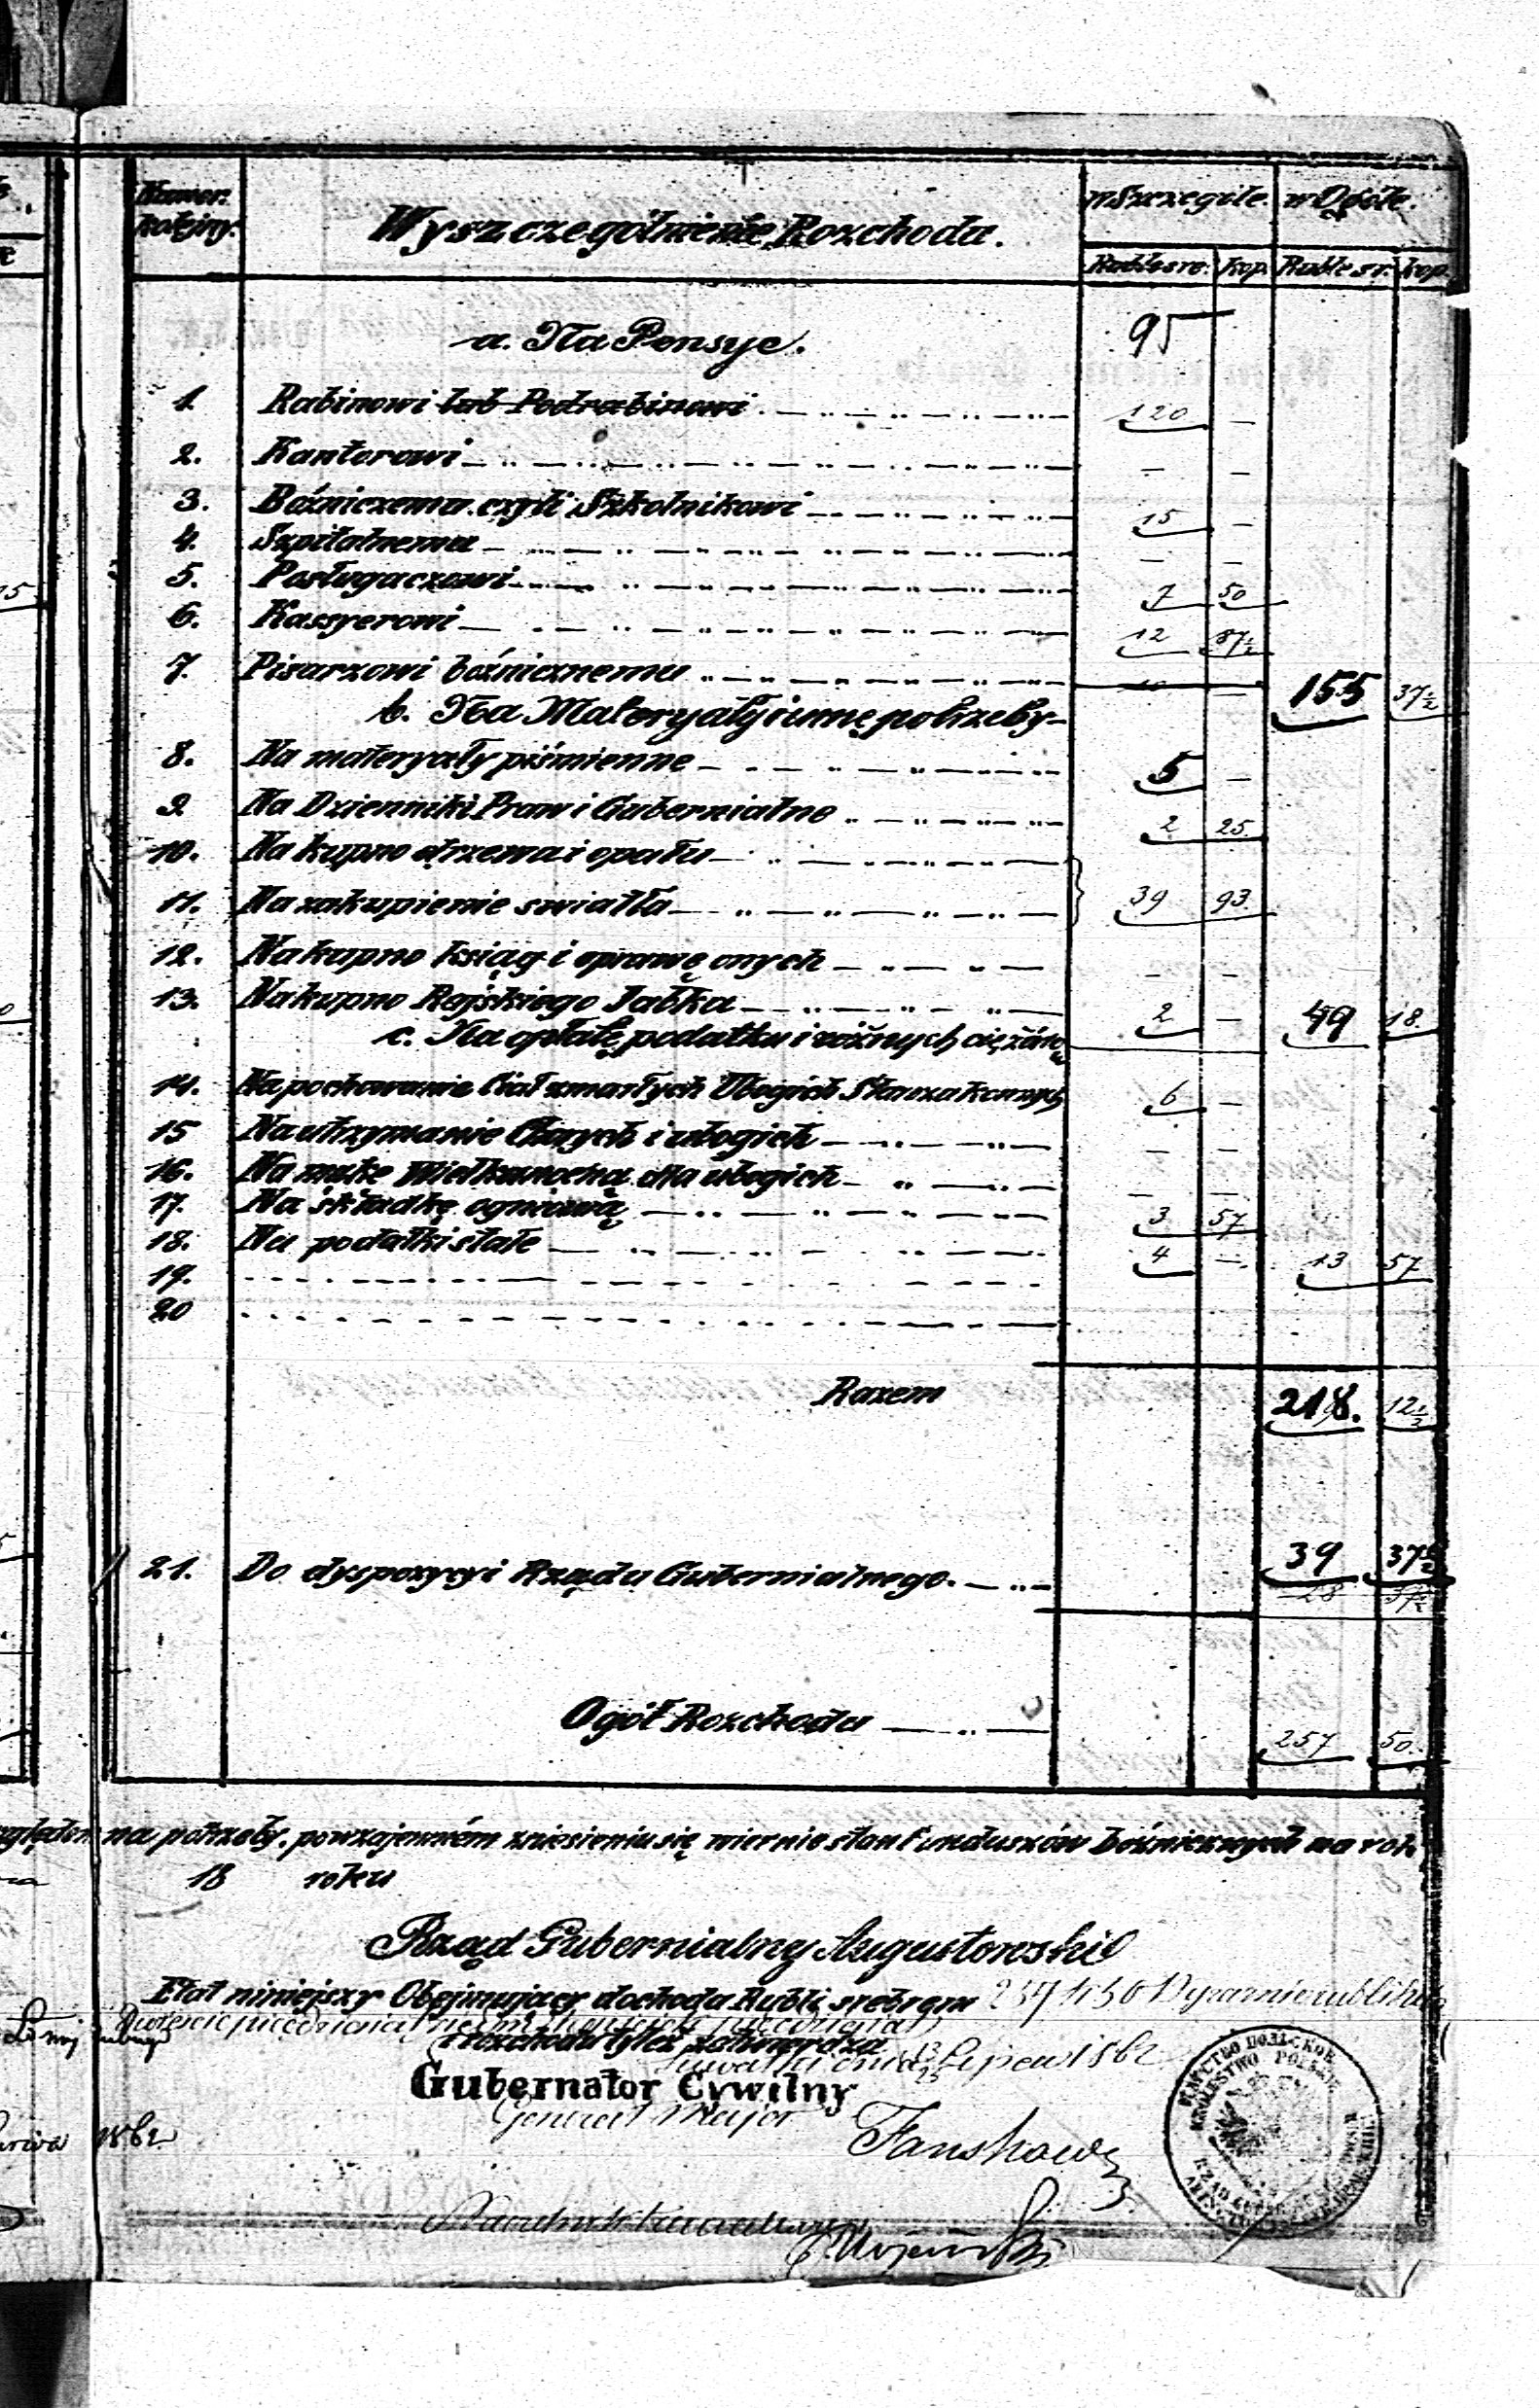 Numer kolejny.
Wyszczególnienie Rozchodu.
w Szczególe. w Ogóle.
Ruble sre. kop. Ruble sr. kop.
a. Na Pensye. 95
1. Rabinowi lub Podrabinowi 120 —
2. Kantorowi — —
3. Bóżniczemu czyli Szkolnikowi 15 —
4. Szpitalnemu — —
5. Posługaczowi 7 50
6. Kassyerowi 12 87½
7. Pisarzowi bóżnicznemu 155 37½
b. Na Materyały i inne potrzeby
8. Na materyały piśmienne 5 —
9. Na Dzienniki Praw i Gubernialne 2 25.
10. Na kupno drzewa i opału
11. Na zakupienie swiatła 39 93.
12. Na kupno ksiąg i oprawę onych — —
13. Na kupno Rajskiego Jabka 2 — 49 18.
c. Na opłatę podatku i różnych ciężarów
14. Na pochowanie Ciał zmarłych Ubogich Starozakonnych 6 —
15 Na utrzymanie Chorych i ubogich — —
16. Na mąkę Wielkanocną dla ubogich — —
17. Na składkę ogniową 3 57
18. Na podatki stałe 4 — 13 57
19.
20
Razem 218. 12½
21. Do dyspozycyi Rządu Gubernialnego. 39 37½
28 37½
Ogół Rozchodu 257 50.
na potrzeby, powzajemném zniesieniu się wiernie stan funduszów bóżnicznych na rok
18 roku
Rząd Gubernialny Augustowski
Etat niniejszy Obejmujący dochodu Rubli srebrem 257 k 50 Wyraźnie rubli
Dwieście pięćdziesiąt
i rozchodu tyleż zatwierdza
Suwałki dnia 13/25 Lipca 1862
Gubernator Cywilny
Generał Major
Fanshawe
1862
Naczelnik Kancellaryi